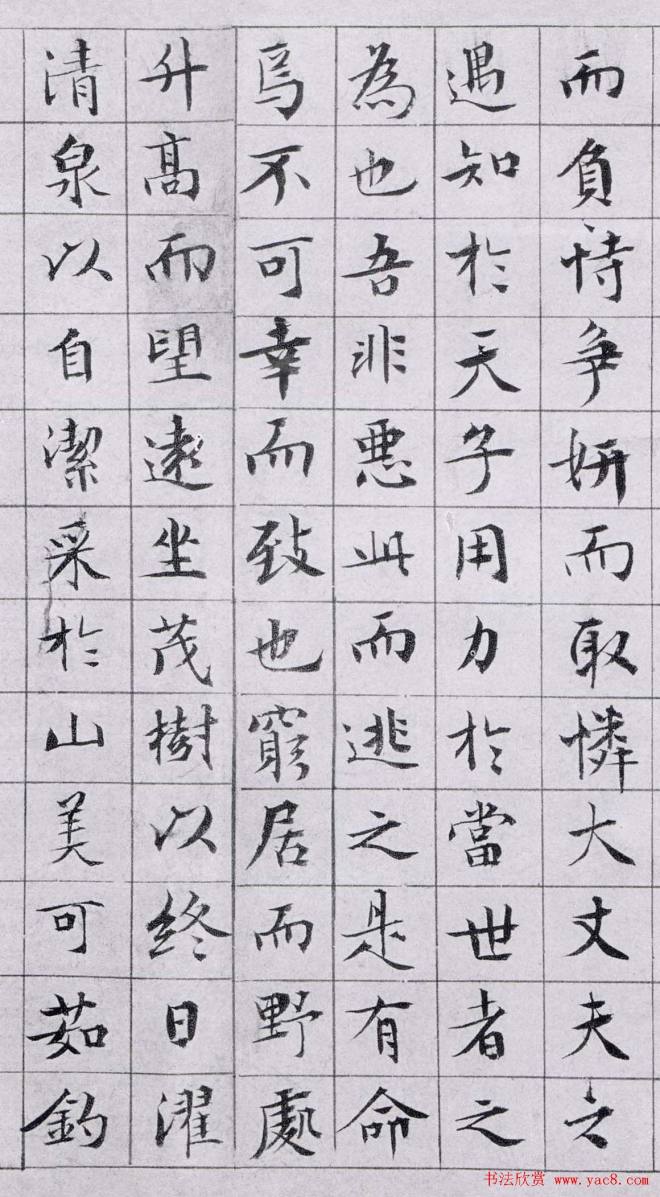 而負恃爭妍而取憐大丈夫之
遇知於天子用力於當世者之
為也吾非惡此而逃之是有命
焉不可幸而致也窮居而野處
升高而望遠坐茂樹以終日濯
清泉以自潔采於山美可茹釣
书法欣赏 www.yac8.com